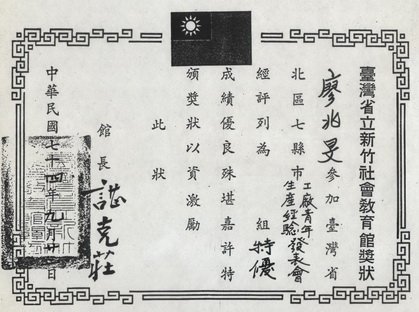 臺灣省立新竹社會教育館獎狀
廖兆旻參加臺灣省
北區七縣市工廠青年生產經驗發表會
經評列為　組特優
成績優良殊堪嘉許特
頒獎狀以資激勵
此狀
館長 諶克莊
中華民國七十四年九月廿日